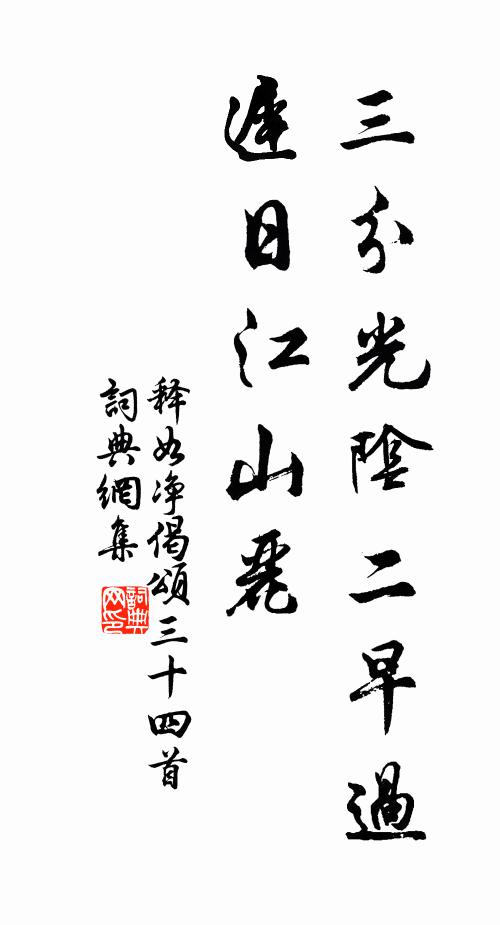 三分光陰二早過
遲日江山麗
释如净偈頌三十四首
詞典網集
詞典
网印